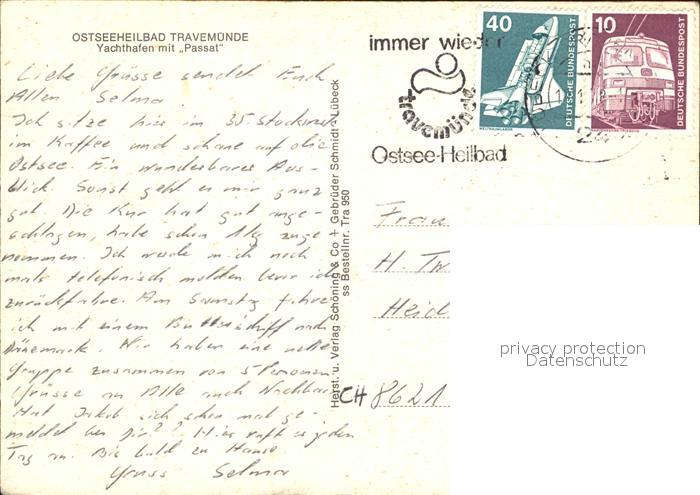 OSTSEEHEILBAD TRAVEMÜNDE
Yachthafen mit „Passat"
Liebe Grüsse sendet Euch
Allen Selma
Ich sitze hier im 35. Stockwerk
im Kaffee und schaue auf die
Ostsee. Ein wunderbarer Aus-
blick. Sonst geht es mir ganz
gut. Die Kur hat gut ange-
schlagen, habe schon 1 kg zuge-
nommen. Ich werde mich noch
mals telefonisch melden bevor ich
zurückfahre. Am Samstag fahre
ich mit einem Butterschiff nach
Dänemark. Wir haben eine nette
Gruppe zusammen von 5 Personen
Grüsse an Alle auch Nachbar
Hat Jakob sich schon mal ge-
meldet bei Dir?? Hier ruft er jeden
Tag an. Bis bald zu Hause.
Gruss Selma
Herst. u. Verlag Schöning & Co + Gebrüder Schmidt · Lübeck
ss Bestellnr. Tra 950
immer wieder
travemünde
Ostsee-Heilbad
40
DEUTSCHE BUNDESPOST
WELTRAUMLABOR
10
DEUTSCHE BUNDESPOST
24
Frau
H. Tw
Heid
CH 8621
privacy protection
Datenschutz